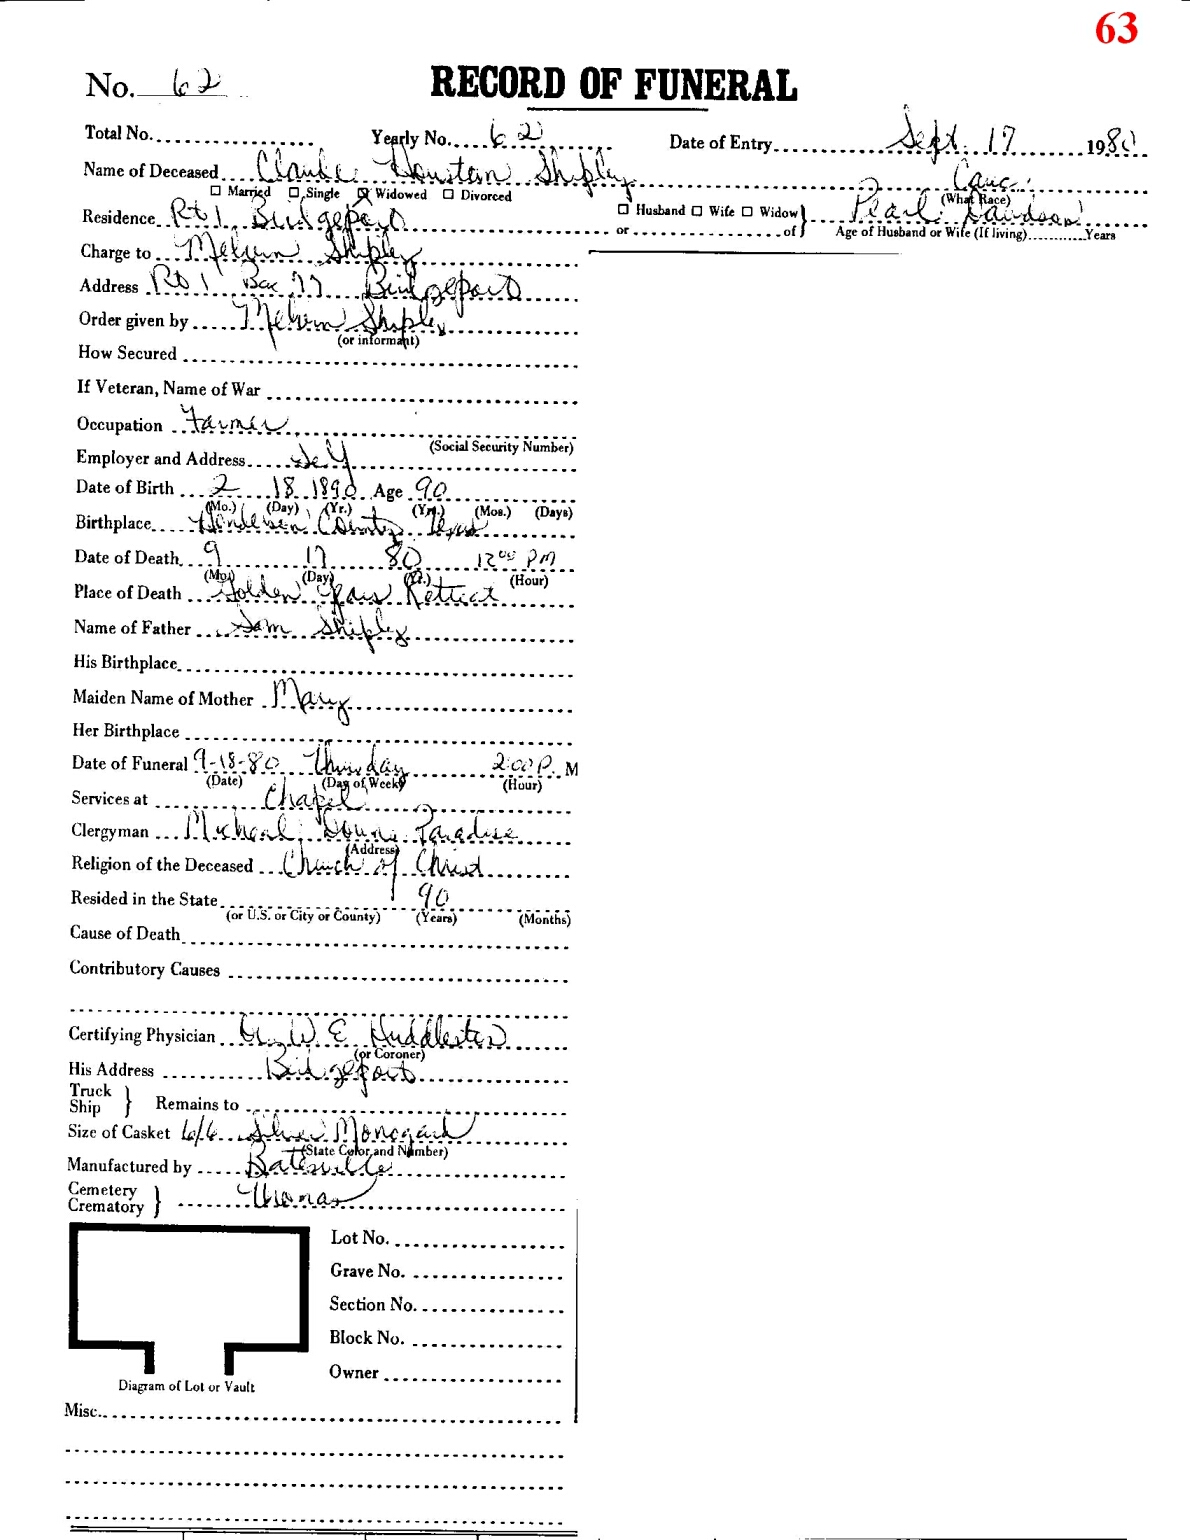 63
No. 62 RECORD OF FUNERAL
Total No. Yearly No. 62 Date of Entry Sept. 17 1980
Name of Deceased Claude Houston Shipley Cauc.
☐ Married ☐ Single ☒ Widowed ☐ Divorced (What Race)
Residence Rt 1 Bridgeport ☐ Husband ☐ Wife ☐ Widow } or of Pearl Davidson
Age of Husband or Wife (If living) Years
Charge to Melvin Shipley
Address Rt 1 Box 77 Bridgeport
Order given by Melvin Shipley
(or informant)
How Secured
If Veteran, Name of War
Occupation Farmer
(Social Security Number)
Employer and Address Self
Date of Birth 2 18 1890 Age 90
(Mo.) (Day) (Yr.) (Yrs.) (Mos.) (Days)
Birthplace Henderson County Texas
Date of Death 9 17 80 12:00 PM
(Mo.) (Day) (Yr.) (Hour)
Place of Death Golden Years Retreat
Name of Father Sam Shipley
His Birthplace
Maiden Name of Mother Mary
Her Birthplace
Date of Funeral 9-18-80 Thursday 2:00 P. M
(Date) (Day of Week) (Hour)
Services at Chapel
Clergyman Micheal Paradise
(Address)
Religion of the Deceased Church of Christ
Resided in the State 90
(or U.S. or City or County) (Years) (Months)
Cause of Death
Contributory Causes
Certifying Physician Dr. W E Huddleston
(or Coroner)
His Address Bridgeport
Truck
Ship } Remains to
Size of Casket 6/6 Silver Monogard
(State Color and Number)
Manufactured by Batesville
Cemetery
Crematory } Thomas
Lot No.
Grave No.
Section No.
Block No.
Owner
Diagram of Lot or Vault
Misc.